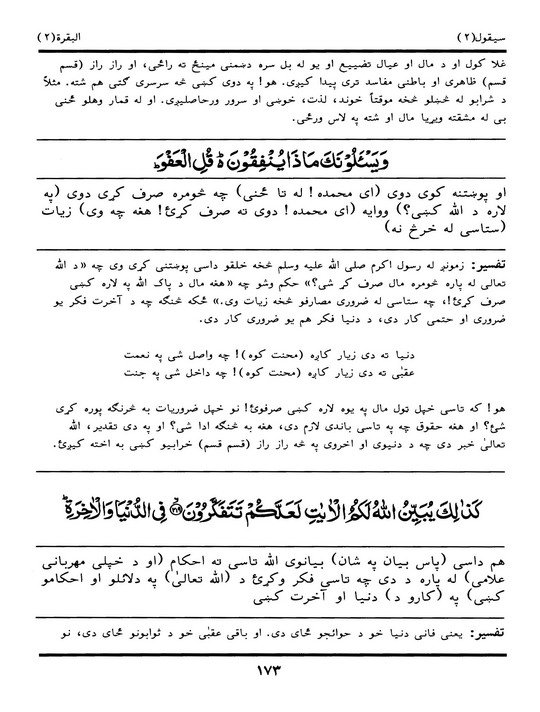 سيقول(٢) البقرة(٢)
غلا کول او د مال او عيال تضييع او يو له بل سره دښمنی مينځ ته راځی، او راز راز (قسم
قسم) ظاهری او باطنی مفاسد تری پيدا کيږی. هو! په دوی کښی څه سرسری ګټی هم شته. مثلاً
د شرابو له څښلو څخه موقتاً خوند، لذت، خوښی او سرور ورحاصليږی. او له قمار وهلو ځنی
بی له مشقته وړيا مال او شته په لاس ورځی.
وَيَسْـَٔلُوْنَكَ مَاذَا يُنْفِقُوْنَ ۬ؕ قُلِ الْعَفْوَؕ
او پوښتنه کوی دوی (ای محمده! له تا ځنی) چه څومره صرف کړی دوی (په
لاره د الله کښی؟) ووايه (ای محمده! دوی ته صرف کړئ! هغه چه وی) زيات
(ستاسی له خرڅ نه)
تفسير: زمونږ له رسول اکرم صلی الله عليه وسلم څخه خلقو داسی پوښتنی کړی وی چه «د الله
تعالی له پاره څومره مال صرف کړ شی؟» حکم وشو چه «هغه مال د پاک الله په لاره کښی
صرف کړئ!، چه ستاسی له ضروری مصارفو څخه زيات وی.» ځکه څنګه چه د آخرت فکر يو
ضروری او حتمی کار دی، د دنيا فکر هم يو ضروری کار دی.
دنيا ته دی زيار کاږه (محنت کوه)! چه واصل شی په نعمت
عقبٰی ته دی زيار کاږه (محنت کوه)! چه داخل شی په جنت
هو! که تاسی خپل ټول مال په يوه لاره کښی صرفوئ! نو خپل ضروريات به څرنګه پوره کړی
شئ؟ او هغه حقوق چه په تاسی باندی لازم دی، هغه به څنګه ادا شی؟ او په دی تقدير، الله
تعالیٰ خبر دی چه د دنيوی او اخروی په څه راز راز (قسم قسم) خرابيو کښی به اخته کيږئ.
كَذٰلِكَ يُبَيِّنُ اللّٰهُ لَكُمُ الْاٰيٰتِ لَعَلَّكُمْ تَتَفَكَّرُوْنَ ﴿۲۱۹﴾ فِى الدُّنْيَا وَالْاٰخِرَةِؕ
هم داسی (پاس بيان په شان) بيانوی الله تاسی ته احکام (او د خپلی مهربانی
علامی) له پاره د دی چه تاسی فکر وکړئ د (الله تعالیٰ) په دلائلو او احکامو
کښی) په (کارو د) دنيا او آخرت کښی
تفسير: يعنی فانی دنيا خو د حوائجو ځای دی. او باقی عقبٰی خو د ثوابونو ځای دی، نو
١٧٣